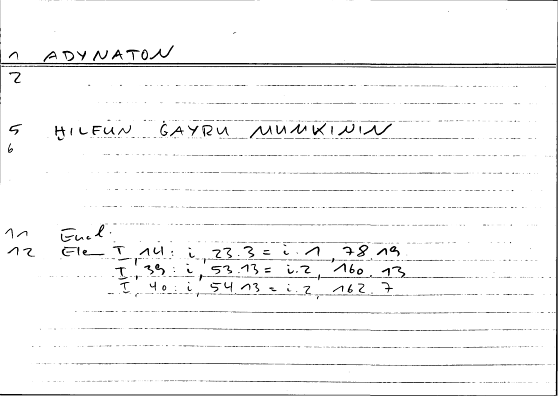 1 ADYNATON
2
5 ḪILFUN ĠAYRU MUMKININ
6
11 Eucl.
12 Ele I, 14: i, 23.3 = i.1, 78.19
I, 39: i, 53.13 = i.2, 160.13
I, 40: i, 54.13 = i.2, 162.7